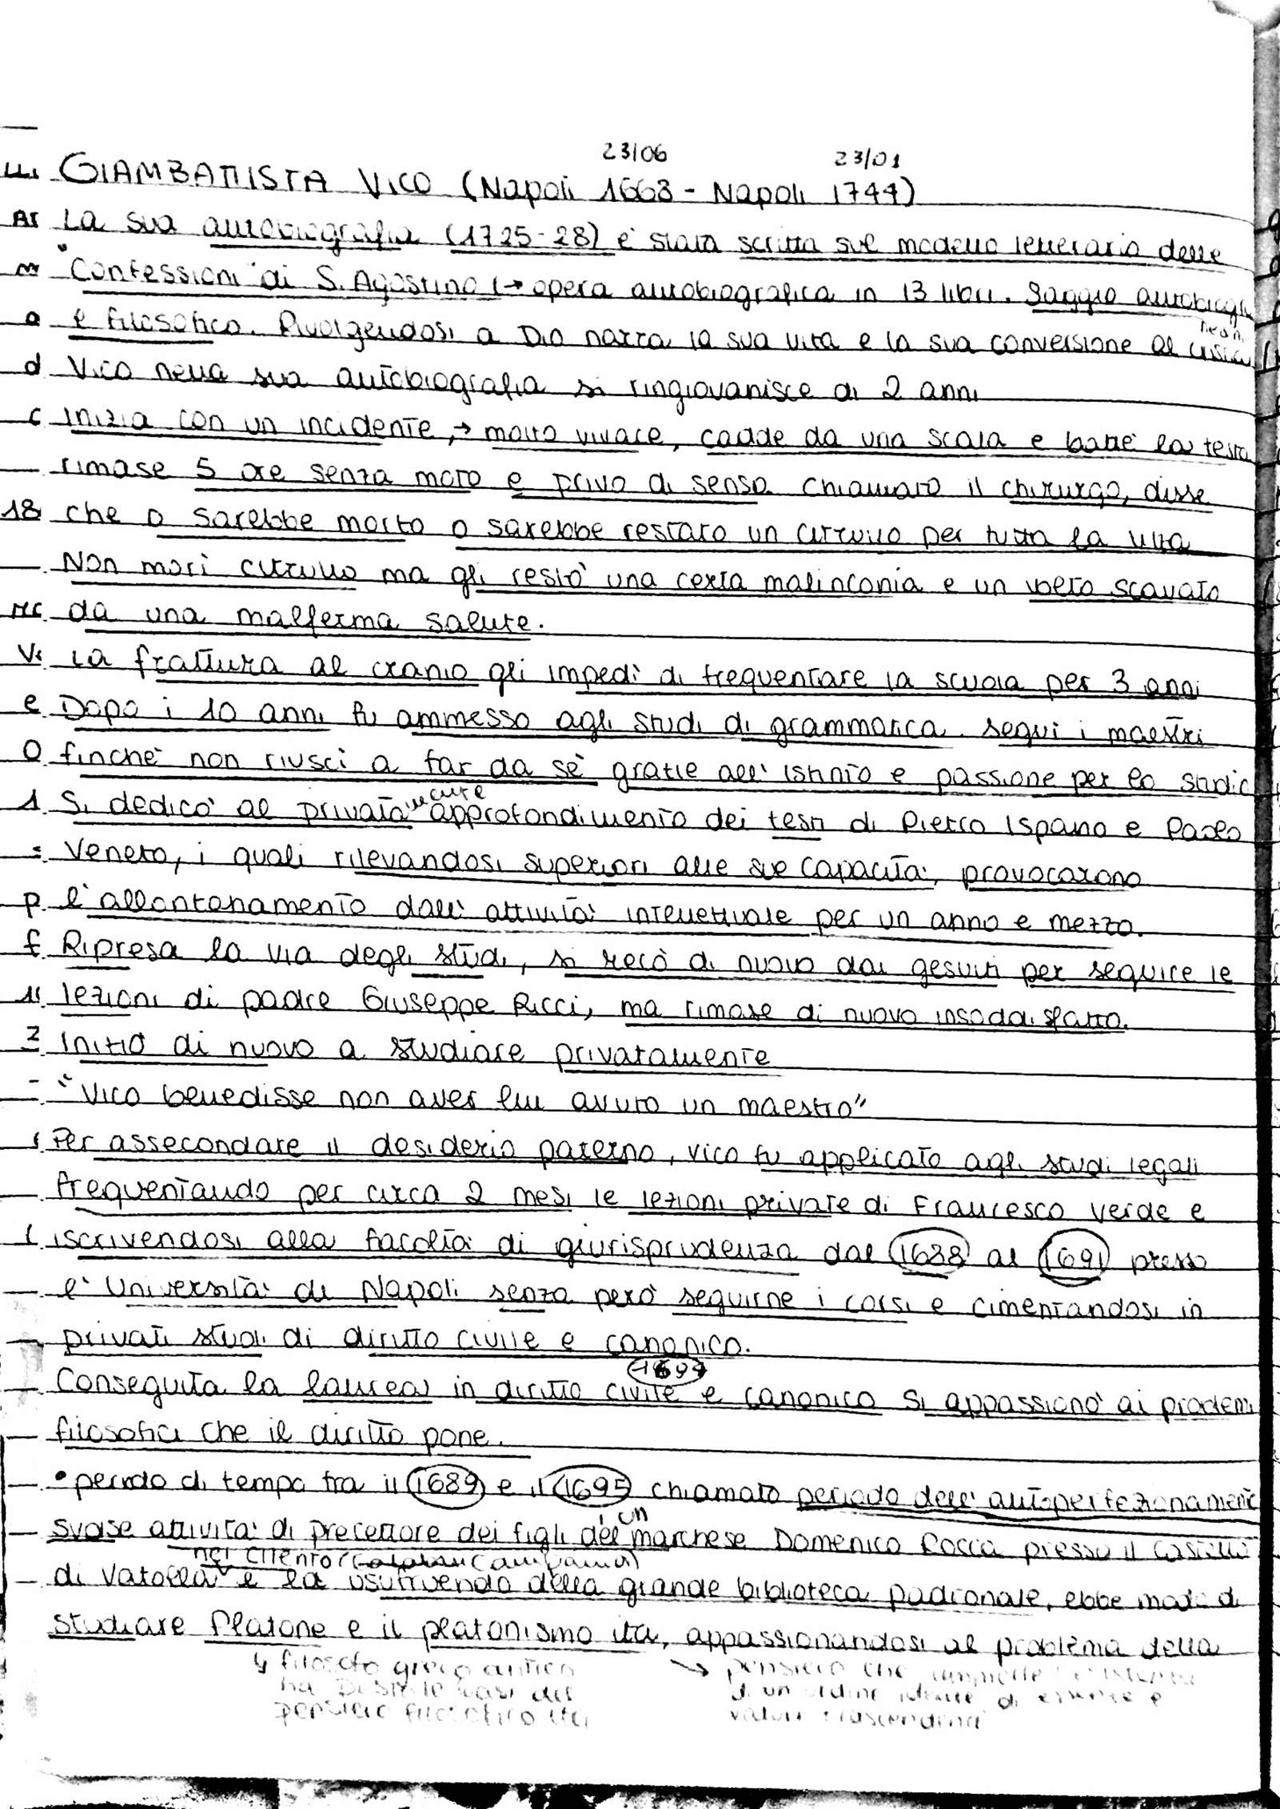 23/06 23/01
GIAMBATTISTA VICO (Napoli 1668 - Napoli 1744)
La sua autobiografia (1725-28) è stata scritta sul modello letterario delle
"Confessioni" di S. Agostino (→ opera autobiografica in 13 libri. Saggio
e filosofico. Rivolgendosi a Dio narra la sua vita e la sua conversione al
Vico nella sua autobiografia si ringiovanisce di 2 anni
Inizia con un incidente, → molto vivace, cadde da una scala e batté la testa
rimase 5 ore senza moto e privo di senso chiamato il chirurgo, disse
che o sarebbe morto o sarebbe restato un citrullo per tutta la vita
Non morì citrullo ma gli restò una certa malinconia e un volto scavato
da una malferma salute.
La frattura al cranio gli impedì di frequentare la scuola per 3 anni
Dopo i 10 anni fu ammesso agli studi di grammatica. seguì i maestri
finchè non riuscì a far da sè gratie all'istinto e passione per lo studio
Si dedicò al privata approfondimento dei testi di Pietro Ispano e Paolo
Veneto, i quali rilevandosi superiori alle sue capacità, provocarono
l'allontanamento dall'attività intellettuale per un anno e mezzo.
Ripresa la via degli studi, si recò di nuovo dai gesuiti per seguire le
lezioni di padre Giuseppe Ricci, ma rimase di nuovo insoddisfatto.
Iniziò di nuovo a studiare privatamente
"Vico benedisse non aver lui avuto un maestro"
Per assecondare il desiderio paterno, vico fu applicato agli studi legali
frequentando per circa 2 mesi le lezioni private di Francesco Verde e
iscrivendosi alla facoltà di giurisprudenza dal 1688 al 1691 presso
l'Università di Napoli senza però seguirne i corsi e cimentandosi in
privati studi di diritto civile e canonico.
Conseguita la laurea in diritto civile e canonico si appassionò ai problemi
filosofici che il diritto pone.
• periodo di tempo tra il 1689 e il 1695 chiamato periodo dell'
svolse attività di precettore dei figli del un marchese Domenico Rocca presso il castello
nel cilento
di Vatolla e là usufruendo della grande biblioteca padronale, ebbe modo di
studiare Platone e il platonismo ita, appassionandosi al problema della
↳ filosofo greco antico
ha
pensiero filosofico
→ pensiero che ammette
d'un ordine ideale di essenze e
valori trascendenti